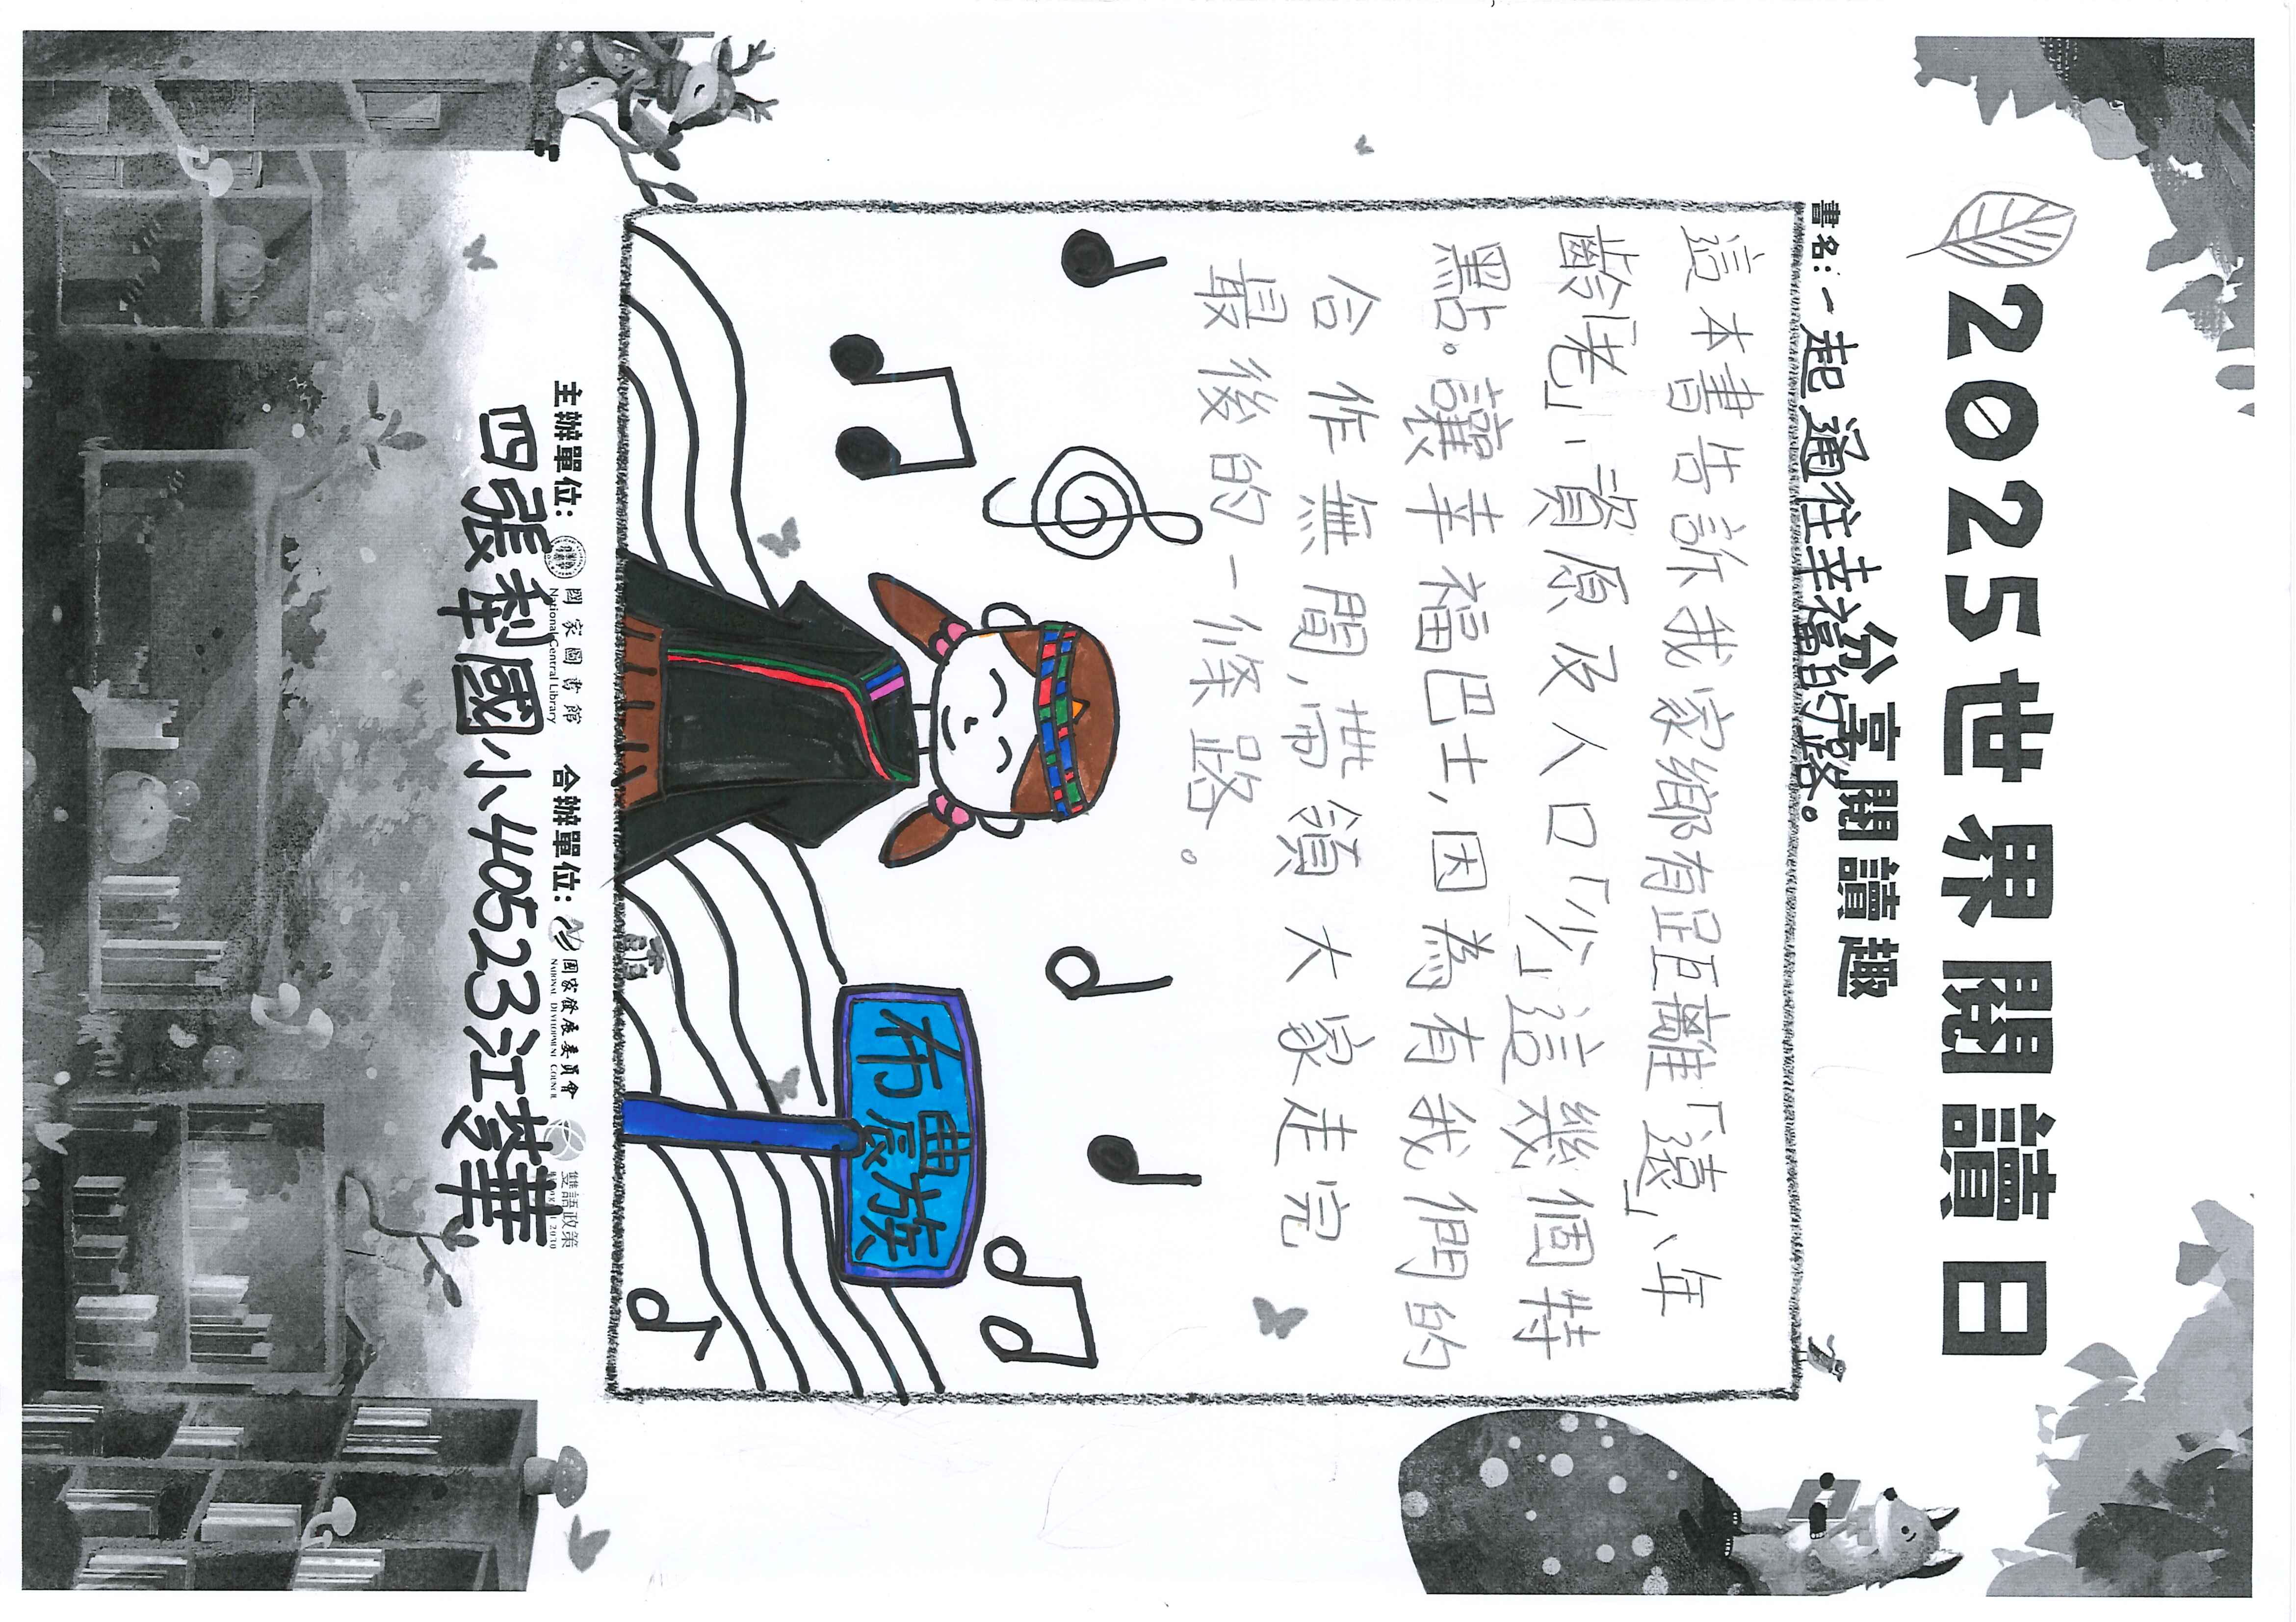 2025世界閱讀日
分享閱讀趣
書名：一起通往幸福的路。
這本書告訴我家鄉有距離「遠」、年
齡「老」、資原及人口「少」這幾個特
點。讓幸福巴士，因為有我們的
合作無間，帶領大家走完
最後的一條路。
布農族
主辦單位：國家圖書館 National Central Library 合辦單位：國家發展委員會 National Development Council 雙語政策
四張犁國小40523江